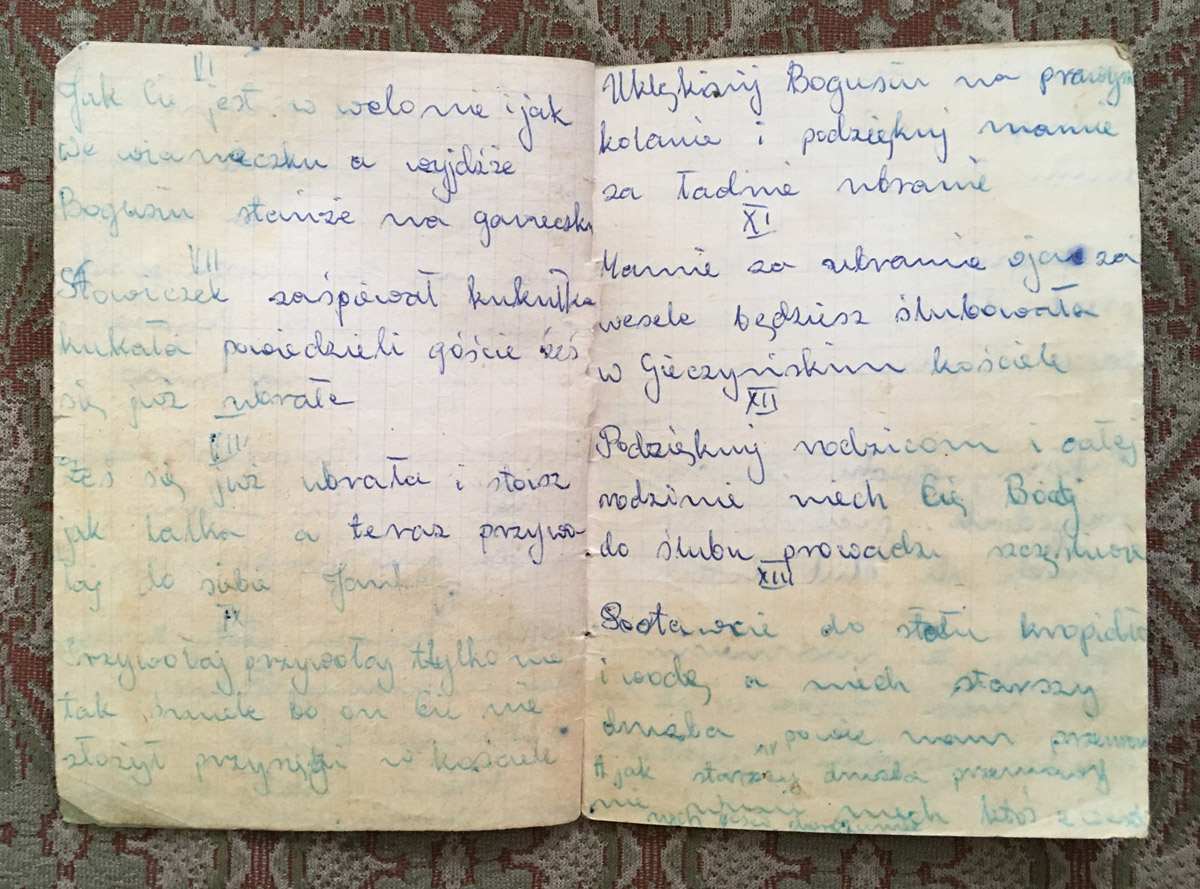 VI
Jak Ci jest w welonie i jak
we wianeczku a wyjdźże
Bogusiu stańże na ganeczku
VII
Słowiczek zaśpiewał kukułka
kukała powiedzieli góście żeś
się już ubrała
VIII
Żeś się już ubrała i stoisz
jak lalka a teraz przywo-
łaj do siebie Janka
IX
Przywołaj przywołaj tylko nie
tak śmiele bo on Ci nie
złożył przysięgi w kościele
Uklęknij Bogusiu na prawym
kolanie i podziękuj mamie
za ładnie ubranie
XI
Mamie za ubranie ojcu za
wesele będziesz ślubowała
w Gieczyńskim kościele
XII
Podziękuj rodzicom i całej
rodzinie niech Cię Bóg
do ślubu prowadzi szczęśliwie
XIII
Postawcie do stołu kropidło
i wodę a niech starszy
drużba powie nam
XIV
A jak starszy drużba przemowy
nie niech ktoś
niech